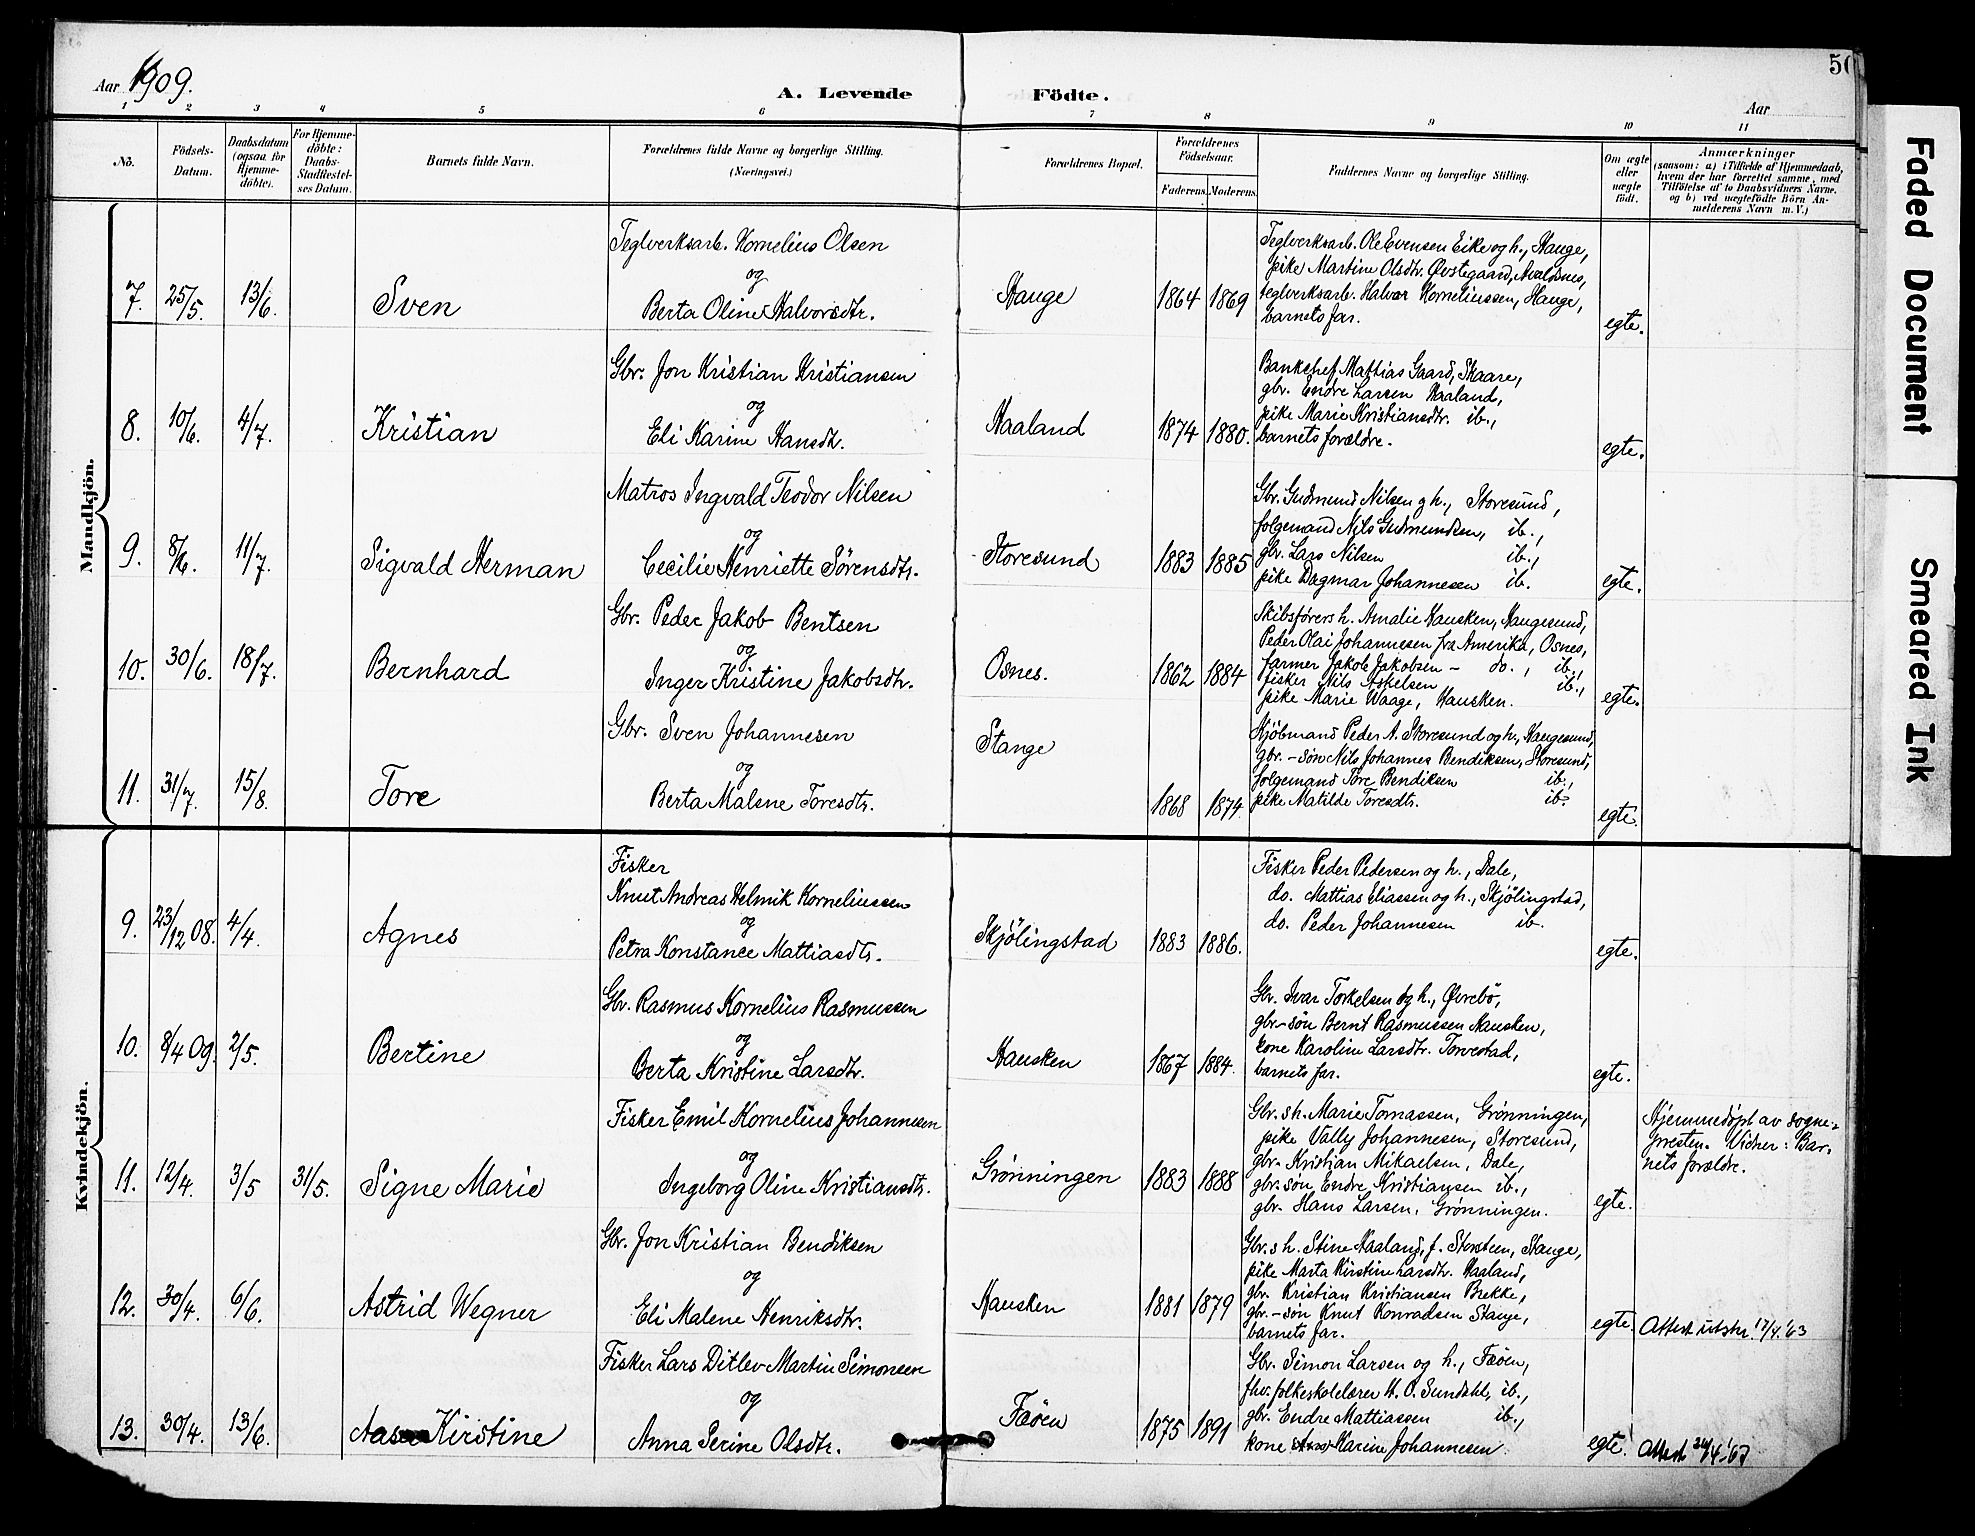 Aar 1909.
A. Levende Födte.
Aar
50
1 2 3 4 5 6 7 8 9 10 11
No.
Födsels-
Datum.
Daabsdatum
(ogsaa for
Hjemme-
döbte).
For Hjemme-
döbte:
Daabs-
Stadfæstel-
ses Datum.
Barnets fulde Navn.
Forældrenes fulde Navne og borgerlige Stilling.
(Næringsvei.)
Forældrenes Bopæl.
Forældrenes
Födselsaar.
Faderens. Moderens.
Faddernes Navne og borgerlige Stilling.
Om ægte
eller
uægte
födt.
Anmærkninger
(saasom: a) i Tilfælde af Hjemmedaab,
hvem der har forrettet samme, med
Tilföielse af to Daabsvidners Navne.
og b) ved uægtefödte Börn An-
melderens Navn m. V.)
Mandkjön.
Teglverksarb. Kornelius Olsen
og
7. 25/5. 13/6. Sven Berta Oline Halvorsdtr. Hauge 1864 1869
Teglverksarb. Ole Evensen Eike og h., Hauge,
pike Martine Olsdtr. Øvstegaard, Avaldsnes,
teglverksarb. Halvor Korneliussen, Hauge,
barnets far.
egte.
Gbr. Jon Kristian Kristiansen
og
8. 10/6. 4/7. Kristian Eli Karine Hansdtr. Haaland 1874 1880.
Bankchef Mattias Gaard, Skaare,
gbr. Endre Larsen Haaland,
pike Marie Kristiansdtr. ib.,
barnets forældre.
egte.
Matros Ingvald Teodor Nilsen
og
9. 8/6. 11/7. Sigvald Herman Cecilie Henriette Sörensdtr. Storesund 1883 1885
Gbr. Gudmund Nilsen og h., Storesund,
folgemand Nils Gudmundsen, ib.,
gbr. Lars Nilsen ib.,
pike Dagmar Johannesen ib.
egte.
Gbr. Peder Jakob Bentsen
og
10. 30/6. 18/7. Bernhard Inger Kristine Jakobsdtr. Osnes. 1862 1884
Skibsførers h. Amalie Hausken, Haugesund,
Peder Olai Johannesen fra Amerika, Osnes,
farmer Jakob Jakobsen – do., ib.,
fisker Nils Askelsen ib.,
pike Marie Waage, Hausken.
egte.
Gbr. Sven Johannesen
og
11. 31/7. 15/8. Tore Berta Malene Toresdtr. Stange 1868 1874.
Kjöbmand Peder A. Storesund og h., Haugesund,
gbr.-sön Nils Johannes Bendiksen, Storesund,
folgemand Tore Bendiksen ib.,
pike Matilde Toresdtr. ib.
egte.
Kvindekjön.
Fisker
Knut Andreas Helmik Korneliussen
og
9. 23/12 08. 4/4. Agnes Petra Konstance Mattiasdtr. Skjölingstad 1883 1886.
Fisker Peder Pedersen og h., Dale,
do. Mattias Eliassen og h., Skjölingstad,
do. Peder Johannesen ib.
egte.
Gbr. Rasmus Kornelius Rasmussen
og
10. 8/4 09. 2/5. Bertine Berta Kristine Larsdtr. Hausken 1867 1884.
Gbr. Ivar Torkelsen og h., Øvrebö,
gbr.-sön Bernt Rasmussen Hausken,
kone Karoline Larsdtr. Torvestad,
barnets far.
egte.
Fisker Emil Kornelius Johannesen
og
11. 12/4. 3/5 31/5. Signe Marie Ingeborg Oline Kristiansdtr. Grönningen 1883 1888
Gbr.s h. Marie Tomassen, Grönningen,
pike Vally Johannesen, Storesund,
gbr. Kristian Mikaelsen, Dale,
gbr.sön Endre Kristiansen ib.,
gbr. Hans Larsen, Grönningen.
egte.
Hjemmedöpt av sogne-
presten. Vidner: Bar-
nets forældre.
Gbr. Jon Kristian Bendiksen
og
12. 30/4. 6/6. Astrid Wegner Eli Malene Henriksdtr. Hausken 1881 1879
Gbr.s h. Stine Haaland, f. Storsteen, Stange,
pike Marta Kirstine Larsdtr. Haaland,
gbr. Kristian Kristiansen Brekke,
gbr.-sön Knut Konradsen Stange,
barnets far.
egte. Attest utstr. 17/4.'63
Fisker Lars Ditlev Martin Simonsen
og
13. 30/4. 13/6. Aasa Kirstine Anna Serine Olsdtr. Fæöen 1875 1891
Gbr. Simon Larsen og h., Fæöen,
fhv. folkeskolelærer H. O. Sundahl, ib.,
gbr. Endre Mattiassen ib.,
kone Karine Johannesen.
egte. Attest
Faded Document
Smeared Ink